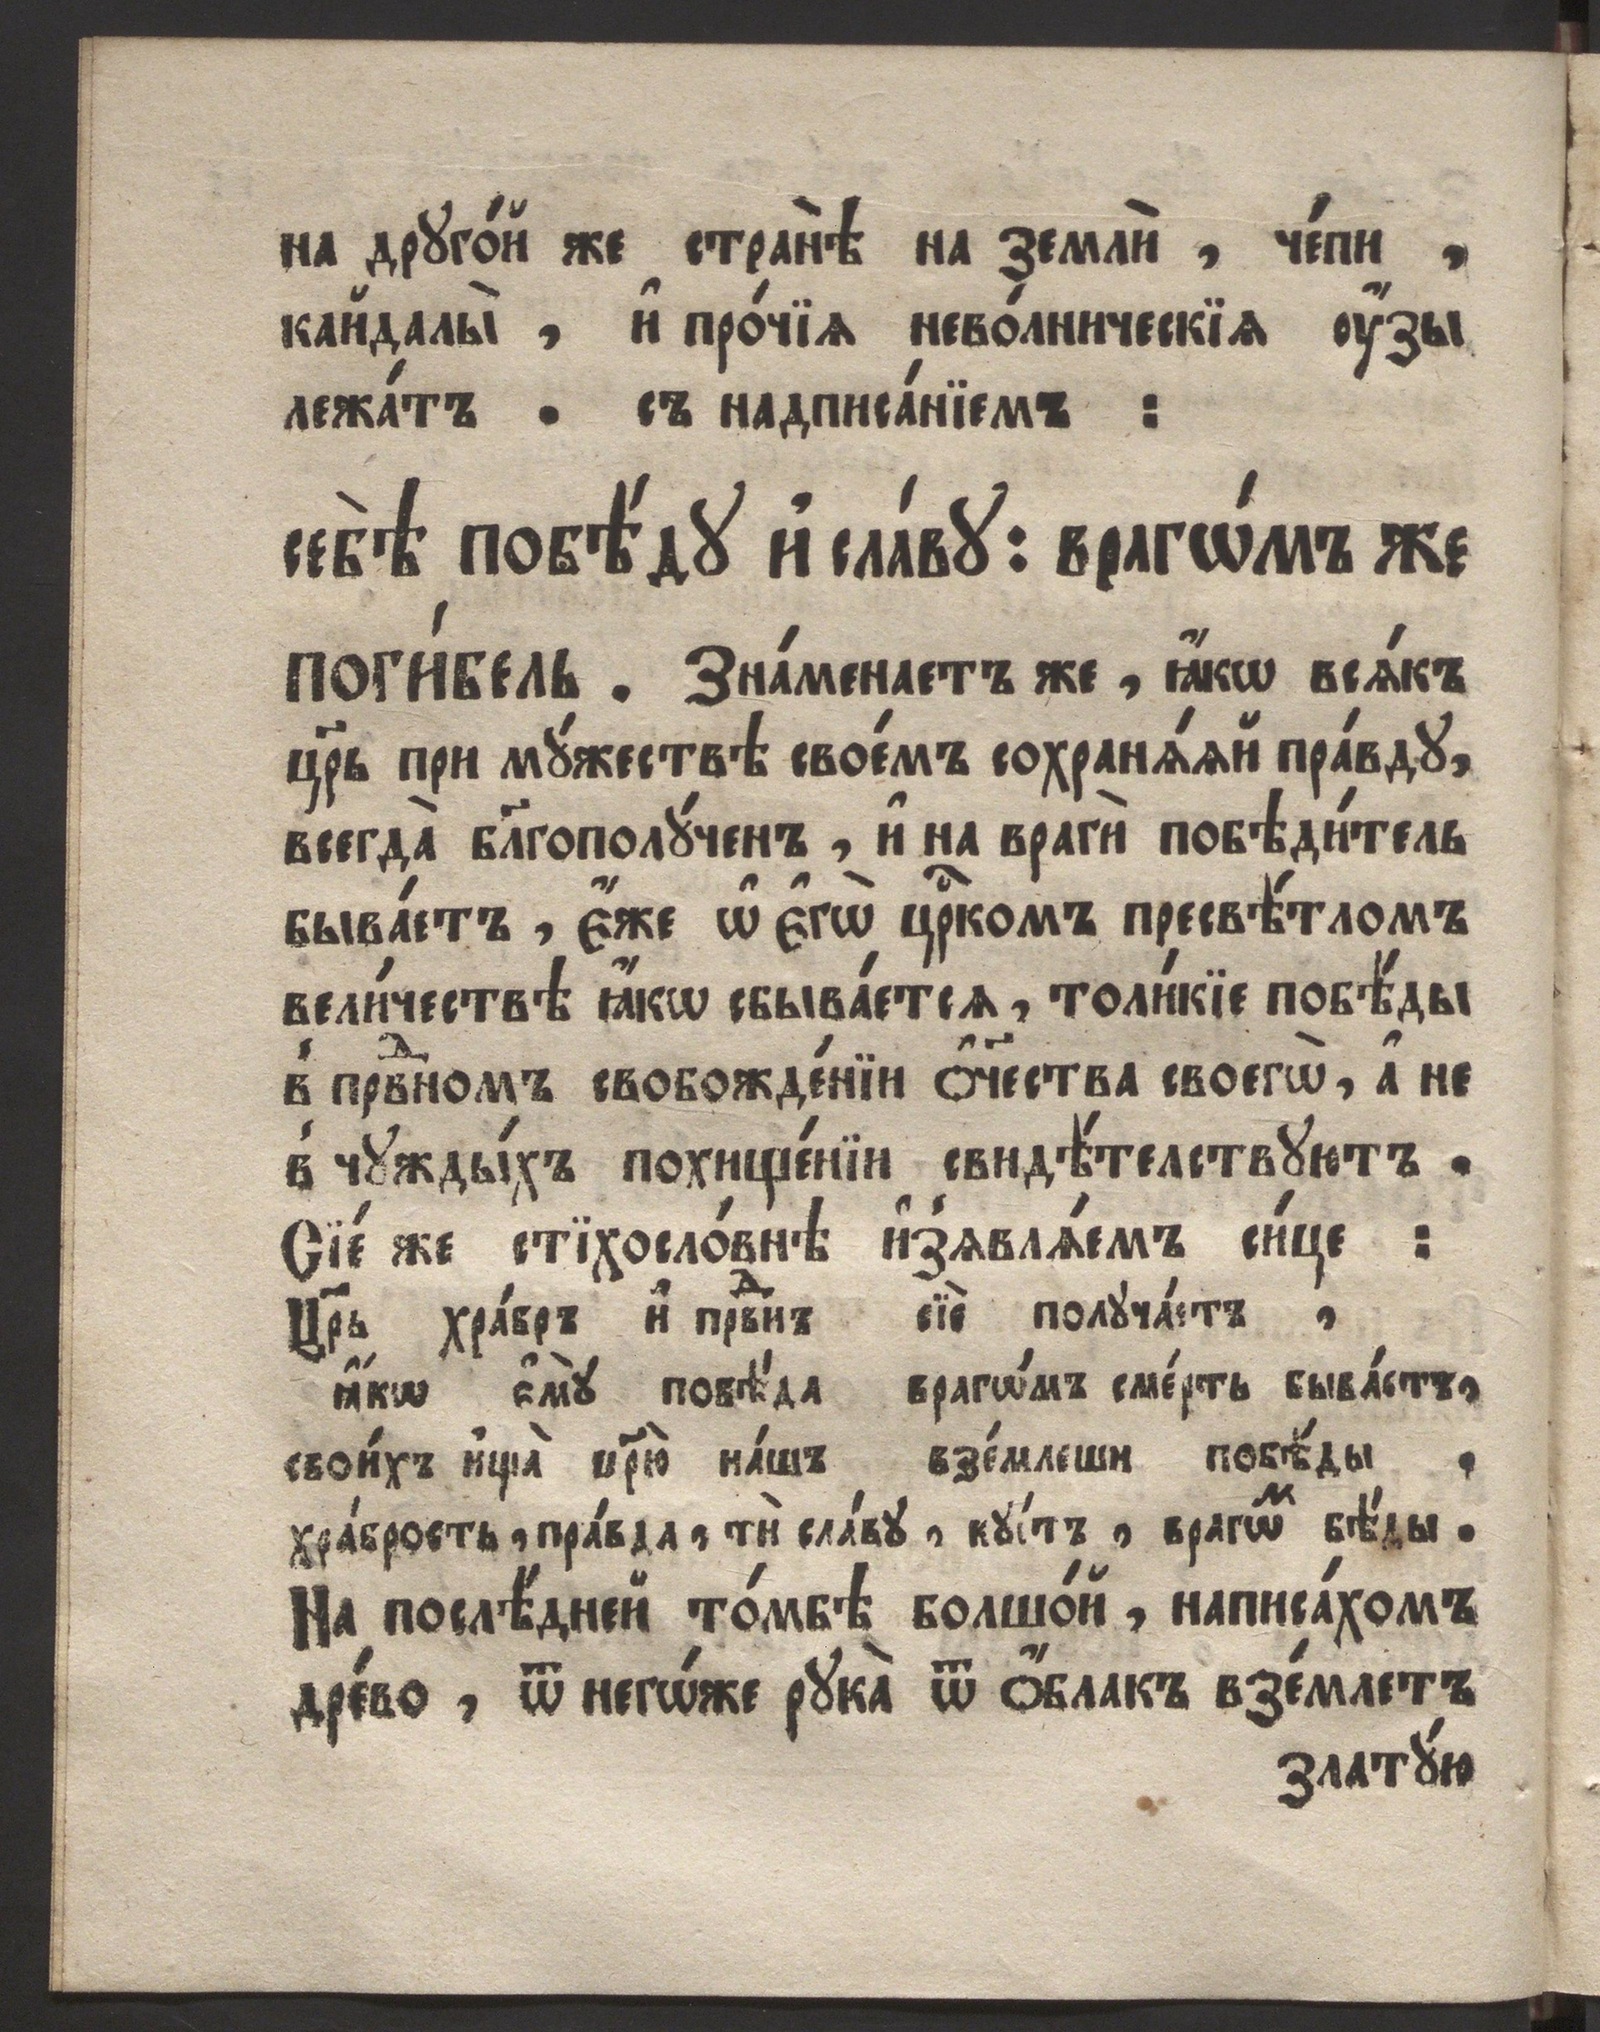 на дрꙋго́й же стра̀нѣ на землѝ , че́пи ,
кайдалы̀ , и҆ про́чїѧ нево́лническїѧ ѹ҆́зы
лежа́тъ . съ надписа́нїемъ :
себѣ̀ побѣ́дꙋ и҆ сла́вꙋ : врагѡ́мъ же
поги́бель . Зна́менаетъ же , ꙗ҆́кѡ всѧ́къ
цр҃ь при мꙋ́жествѣ свое́мъ сохранѧ́ѧй пра́вдꙋ ,
всегда̀ бл҃гополꙋ́ченъ , и҆ на врагѝ побѣди́тель
быва́етъ , є҆́же ѡ҆ є҆гѡ̀ цр҇комъ пресвѣ́тломъ
вели́чествѣ ꙗ҆́кѡ сбыва́етсѧ , толи́кїе побѣ́ды
в̾ првⷣномъ свобожде́нїи ѻ҆ч҃ества своегѡ̀ , а҆ не
в̾ чꙋжды́хъ похище́нїи свидѣ́телствꙋютъ .
Сїе́ же стїхосло́внѣ и҆з̾ѧвлѧ́емъ си́це :
Цр҃ь хра́бръ и҆ првⷣнъ сїѐ полꙋча́етъ ,
ꙗ҆́кѡ є҆мꙋ̀ побѣ́да врагѡ́мъ сме́рть быва́етъ ,
свои́хъ и҆ща̀ цр҃ю̀ на́шъ взе́млеши побѣ́ды .
хра́брость , пра́вда , тѝ сла́вꙋ , кꙋ́птъ , врагѡⷨ бѣ́ды .
На послѣ́дней то́мбѣ болшо́й , написа́хомъ
дре́во , ѿ негѡ́же рꙋка̀ ѿ ѻ҆́блакъ взе́млетъ
златꙋ́ю